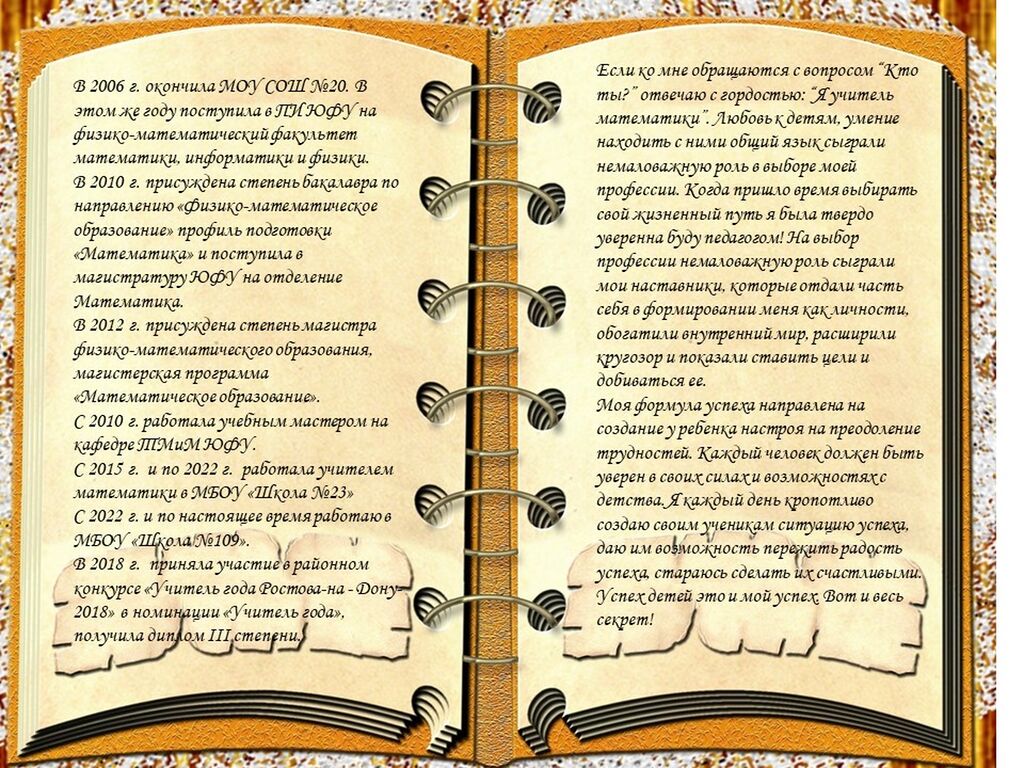 В 2006 г. окончила МОУ СОШ №20. В
этом же году поступила в ПИ ЮФУ на
физико-математический факультет
математики, информатики и физики.
В 2010 г. присуждена степень бакалавра по
направлению «Физико-математическое
образование» профиль подготовки
«Математика» и поступила в
магистратуру ЮФУ на отделение
Математика.
В 2012 г. присуждена степень магистра
физико-математического образования,
магистерская программа
«Математическое образование».
С 2010 г. работала учебным мастером на
кафедре ТМиМ ЮФУ.
С 2015 г. и по 2022 г. работала учителем
математики в МБОУ «Школа №23»
С 2022 г. и по настоящее время работаю в
МБОУ «Школа №109».
В 2018 г. приняла участие в районном
конкурсе «Учитель года Ростова-на - Дону-
2018» в номинации «Учитель года»,
получила диплом III степени.
Если ко мне обращаются с вопросом “Кто
ты?” отвечаю с гордостью: “Я учитель
математики”. Любовь к детям, умение
находить с ними общий язык сыграли
немаловажную роль в выборе моей
профессии. Когда пришло время выбирать
свой жизненный путь я была твердо
уверенна буду педагогом! На выбор
профессии немаловажную роль сыграли
мои наставники, которые отдали часть
себя в формировании меня как личности,
обогатили внутренний мир, расширили
кругозор и показали ставить цели и
добиваться ее.
Моя формула успеха направлена на
создание у ребенка настроя на преодоление
трудностей. Каждый человек должен быть
уверен в своих силах и возможностях с
детства. Я каждый день кропотливо
создаю своим ученикам ситуацию успеха,
даю им возможность пережить радость
успеха, стараюсь сделать их счастливыми.
Успех детей это и мой успех. Вот и весь
секрет!